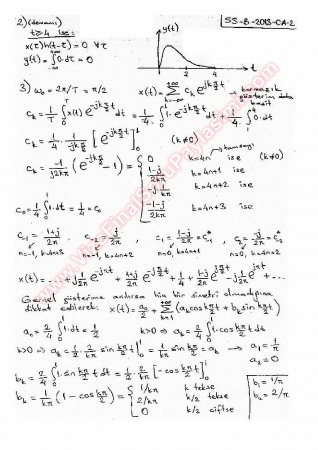 2) (devamı)
SS-B-2013-CA-2
t≥4 ise:
x(τ)h(t-τ) = 0 ∀τ
y(t) = ∫0·dτ = 0
y(t)
t
3) ω₀ = 2π/T = π/2
x(t) = Σ cₖ e^{jkπ/2 t} → karmaşık gösterim daha basit
cₖ = 1/T ∫₀ᵀ x(t) e^{-jkπ/2 t} dt = 1/4 ∫₀¹ 1·e^{-jkπ/2 t} dt + 1/4 ∫₁⁴ 0·dt
cₖ = 1/4 · 1/(-jkπ/2) [e^{-jkπ/2 t}]₀¹ (k≠0)
cₖ = -1/(j2kπ) (e^{-jkπ/2} - 1) =
0 k=4n ise (k≠0)
(1-j)/(2kπ) k=4n+1 ise
-j·1/(kπ) k=4n+2 ise
(-1-j)/(2kπ) k=4n+3 ise
tamsayı
c₀ = 1/4 ∫₀¹ 1·dt = 1/4 = c₀
c₋₁ = (1+j)/(2π) c₋₂ = j/(2π) , c₁ = (1-j)/(2π) = c₋₁* , c₂ = -j/(2π) = c₋₂*
n=-1, k=4n+3 n=-1, k=4n+2 n=0, k=4n+1 n=0, k=4n+2
x(t) = ... + j/(2π) e^{-jπt} + (1+j)/(2π) e^{-jπ/2 t} + 1/4 + (1-j)/(2π) e^{jπ/2 t} - j/(2π) e^{jπt} + ...
Gerçel gösterime ayrılırsa hiç bir simetri olmadığına
dikkat edilerek: x(t) = a₀/2 + Σ (aₖcos kπ/2 t + bₖ sin kπ/2 t)
a₀ = 2/4 ∫₀¹ 1·dt = 1/2 k>0 ⇒ aₖ = 2/4 ∫₀¹ 1·cos kπ/2 t dt
k>0 ⇒ aₖ = 1/2 · 2/(kπ) sin kπ/2 t |₀¹ = 1/(kπ) sin kπ/2 = aₖ → a₁ = 1/π
a₂ = 0
bₖ = 2/4 ∫₀¹ 1·sin kπ/2 t dt = 1/2 · 2/(kπ) [-cos kπ/2 t]₀¹
bₖ = 1/(kπ) (1 - cos kπ/2) =
1/kπ k tekse
2/kπ k/2 tekse
0 k/2 çiftse
b₁ = 1/π
b₂ = 2/π